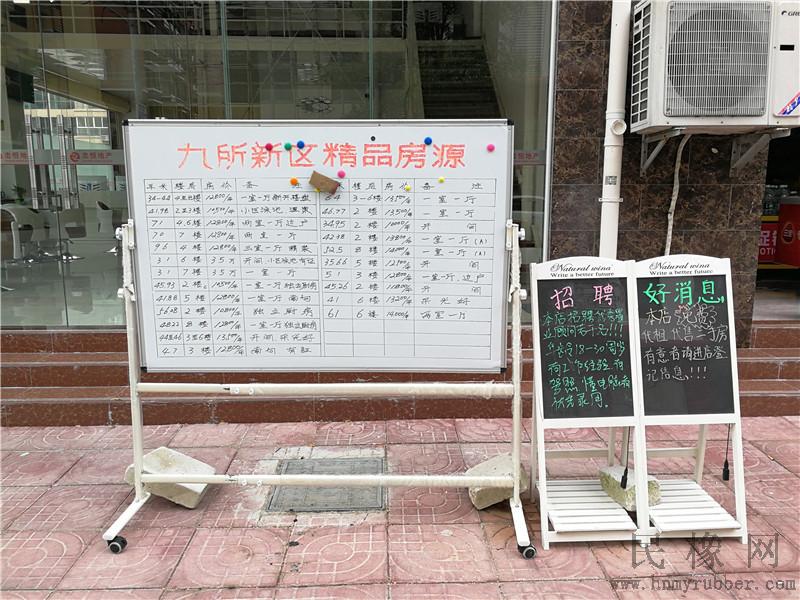 九所新区精品房源
平米 楼层 房价 备 注
34-44 12800/㎡ 一室一厅新开楼盘
41.98 2至3楼 10500/㎡ 小区泳池 温泉
71 4.6楼 12800/㎡ 两室一厅过户
70 7楼 12800/㎡ 两室一厅
96 4楼 12800/㎡ 三室一厅 精装
31 6楼 3.5万
31 7楼 3.5万 一室一厅
45.93 2楼 10500/㎡ 一室一厅独立厨房
4188 5楼 12800/㎡ 一室一厅 南向
2楼 10800/㎡ 独立厨房
4822 8楼 12800/㎡ 一室一厅独立厨房
3至6楼 13500/㎡ 开间 采光好
47 3楼 12800/㎡ 南向
米 楼层 房价 备 注
64 3-6楼 13500/㎡ 一室一厅
46.77 2楼 13500/㎡ 一室一厅
3495 2楼 10000/㎡ 开 间
4238 2楼 13800/㎡ 一室一厅(A)
8楼 一室一厅(A)
3566 5楼 12500/㎡ 开 间
51 3楼 12800/㎡ 一室一厅.过户
4526 2楼 11800/㎡ 开 间
41 6楼 13200/㎡ 采光好
61 6楼 14000/㎡ 两室一厅
Natural wina
Write a better future
招 聘
本店招聘优秀置
业顾问若干名!!!
年龄18-30周岁
有工作经验 有
驾照 懂电脑者
优先录用.
Natural wina
Write a better future
好消息
本店免费
代租 代售二手房
有意者请进店登
记信息!!!
GREE
民橡网
www.hnmyrubber.com